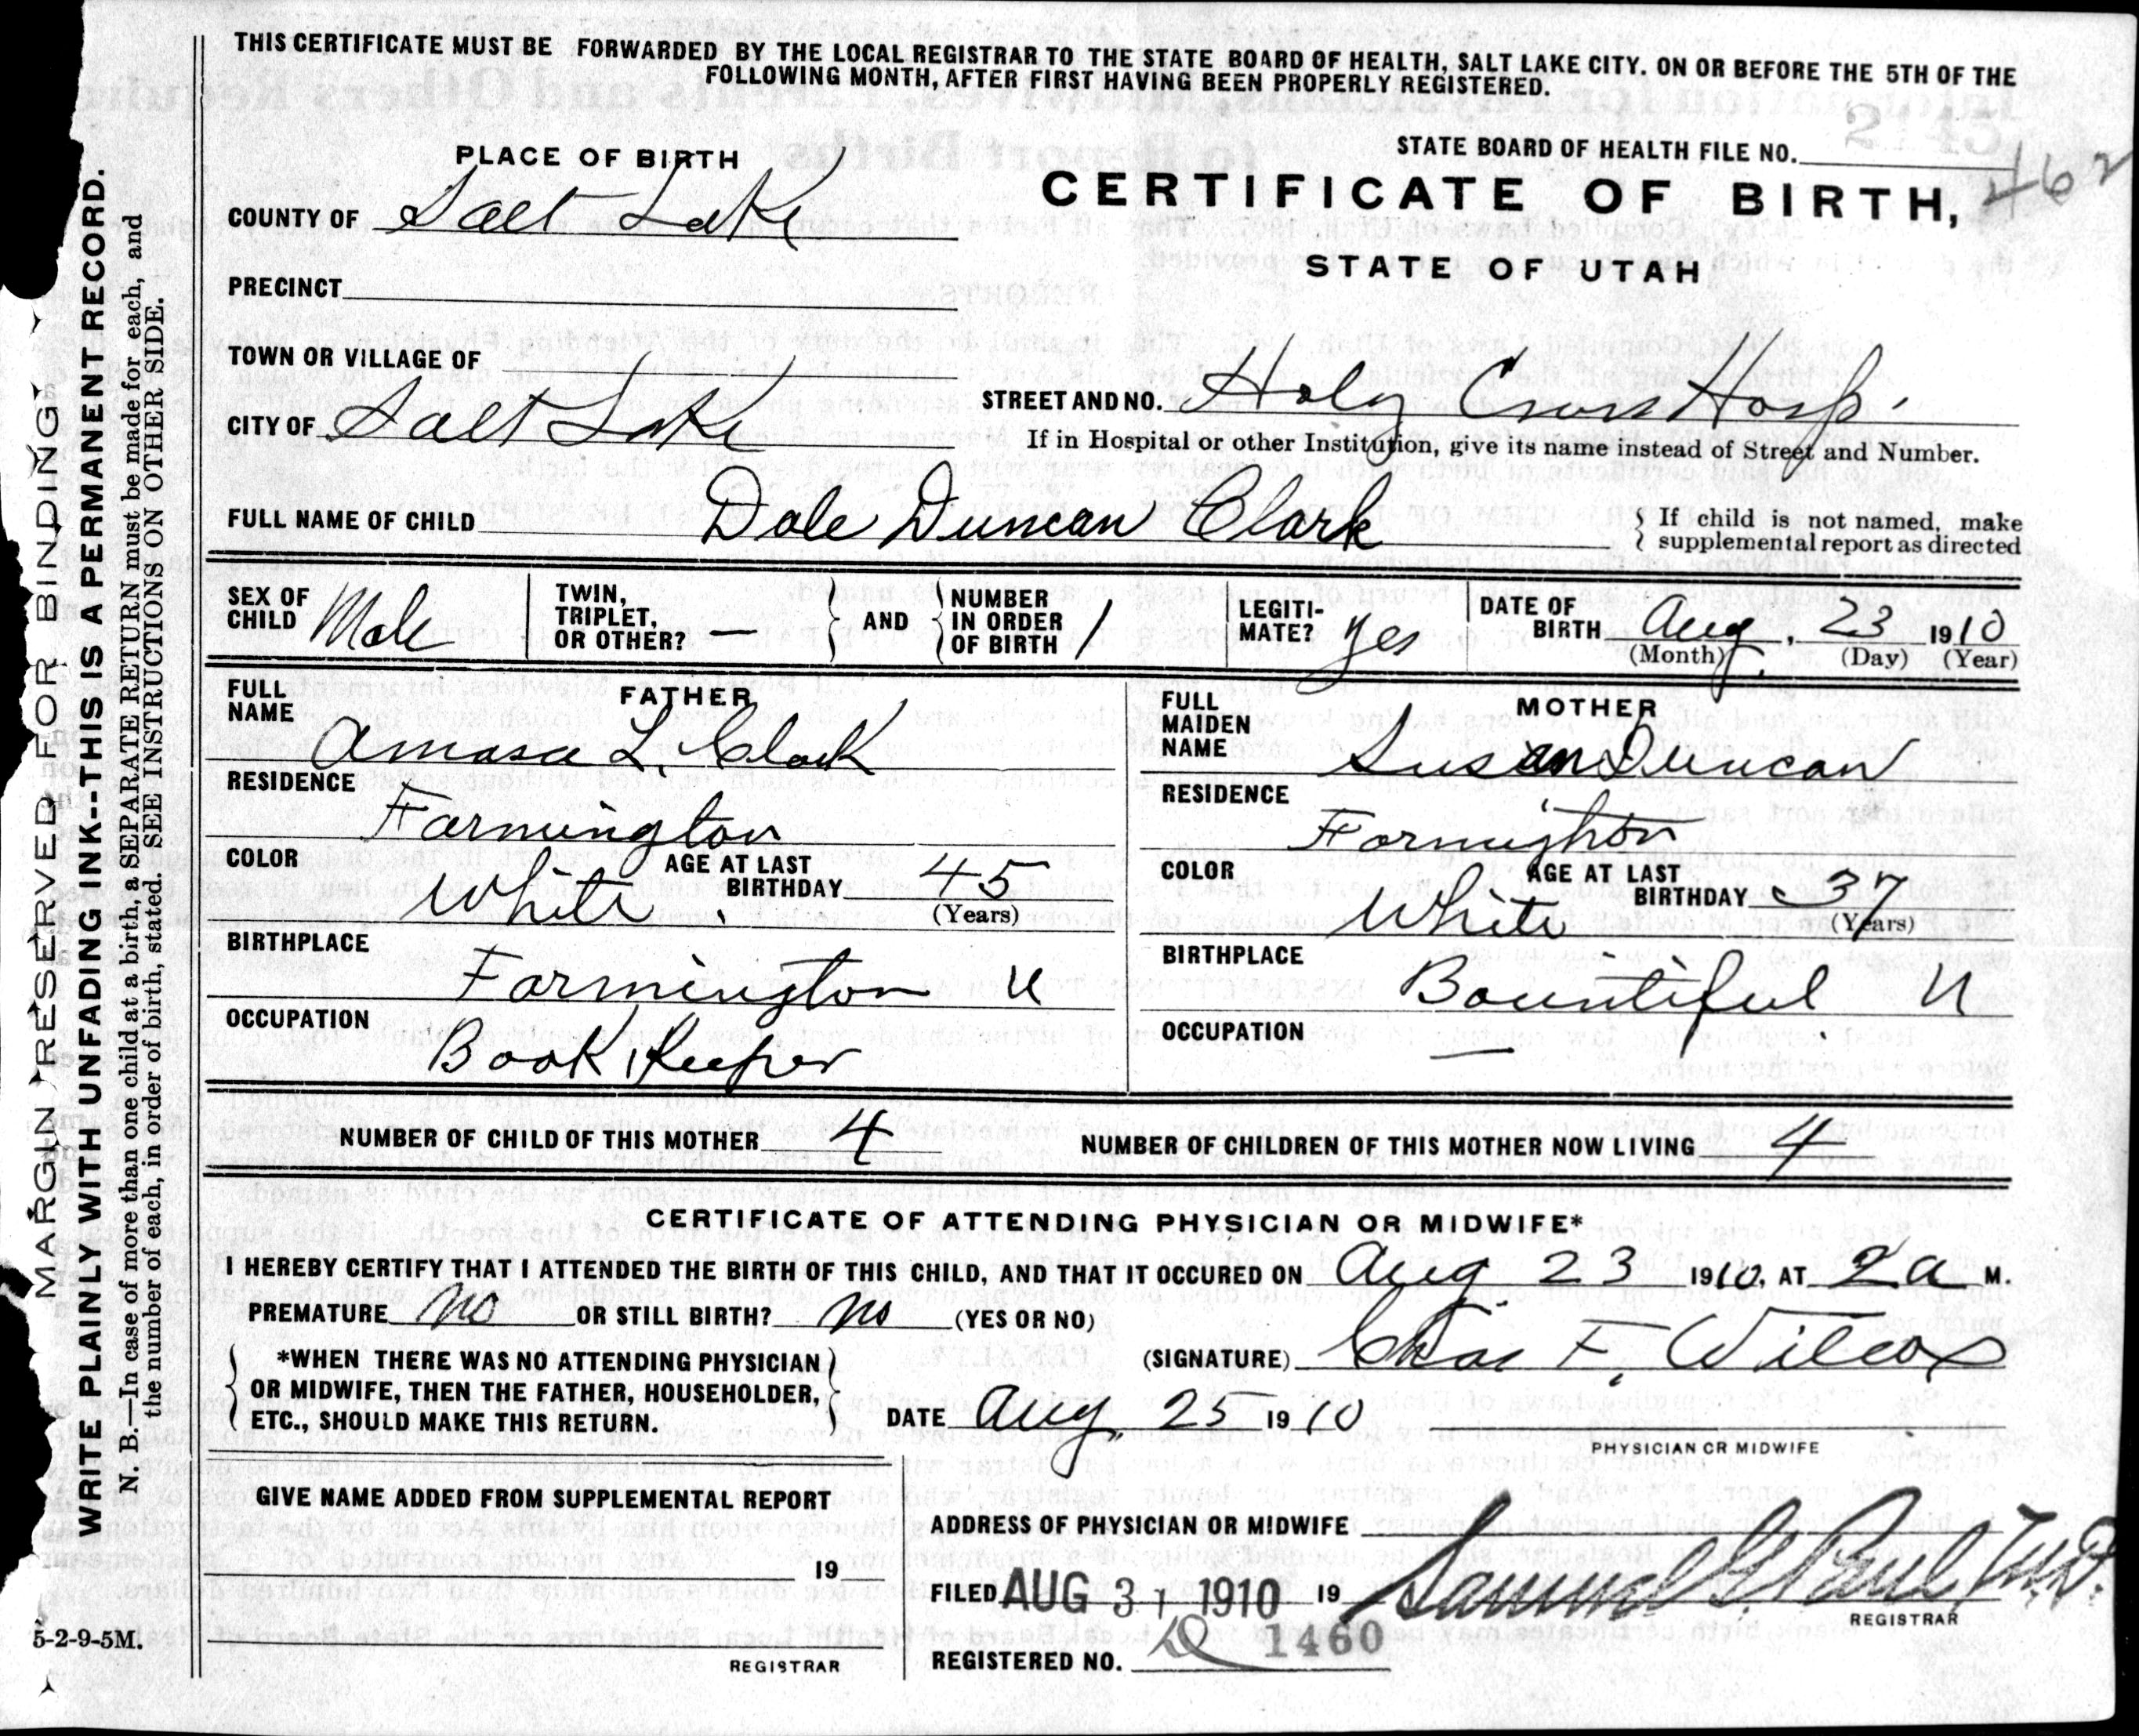 THIS CERTIFICATE MUST BE FORWARDED BY THE LOCAL REGISTRAR TO THE STATE BOARD OF HEALTH, SALT LAKE CITY. ON OR BEFORE THE 5TH OF THE
FOLLOWING MONTH, AFTER FIRST HAVING BEEN PROPERLY REGISTERED.
STATE BOARD OF HEALTH FILE NO.
462
PLACE OF BIRTH
CERTIFICATE OF BIRTH,
STATE OF UTAH
COUNTY OF Salt Lake
PRECINCT
TOWN OR VILLAGE OF
CITY OF Salt Lake
STREET AND NO. Holy Cross Hosp.
If in Hospital or other Institution, give its name instead of Street and Number.
FULL NAME OF CHILD Dale Duncan Clark
If child is not named, make
supplemental report as directed
SEX OF CHILD Male
TWIN, TRIPLET, OR OTHER? —
AND
NUMBER IN ORDER OF BIRTH 1
LEGITI-MATE? yes
DATE OF BIRTH Aug. 23 1910
(Month) (Day) (Year)
FATHER
FULL NAME Amasa L. Clark
RESIDENCE Farmington
COLOR White
AGE AT LAST BIRTHDAY 45
(Years)
BIRTHPLACE Farmington U
OCCUPATION Book Keeper
MOTHER
FULL MAIDEN NAME Susan Duncan
RESIDENCE Farmington
COLOR White
AGE AT LAST BIRTHDAY 37
(Years)
BIRTHPLACE Bountiful U
OCCUPATION —
NUMBER OF CHILD OF THIS MOTHER 4 NUMBER OF CHILDREN OF THIS MOTHER NOW LIVING 4
CERTIFICATE OF ATTENDING PHYSICIAN OR MIDWIFE*
I HEREBY CERTIFY THAT I ATTENDED THE BIRTH OF THIS CHILD, AND THAT IT OCCURED ON Aug 23 1910, AT 2 a M.
PREMATURE No OR STILL BIRTH? No (YES OR NO)
*WHEN THERE WAS NO ATTENDING PHYSICIAN
OR MIDWIFE, THEN THE FATHER, HOUSEHOLDER,
ETC., SHOULD MAKE THIS RETURN.
(SIGNATURE) Chas F. Wilcox
DATE Aug. 25 1910
PHYSICIAN OR MIDWIFE
GIVE NAME ADDED FROM SUPPLEMENTAL REPORT
19
REGISTRAR
ADDRESS OF PHYSICIAN OR MIDWIFE
FILED AUG 31 1910 19 Samuel G. Paul M.D.
REGISTRAR
REGISTERED NO. 1460
5-2-9-5M.
MARGIN RESERVED FOR BINDING
WRITE PLAINLY WITH UNFADING INK--THIS IS A PERMANENT RECORD.
N. B.—In case of more than one child at a birth, a SEPARATE RETURN must be made for each, and
the number of each, in order of birth, stated. SEE INSTRUCTIONS ON OTHER SIDE.